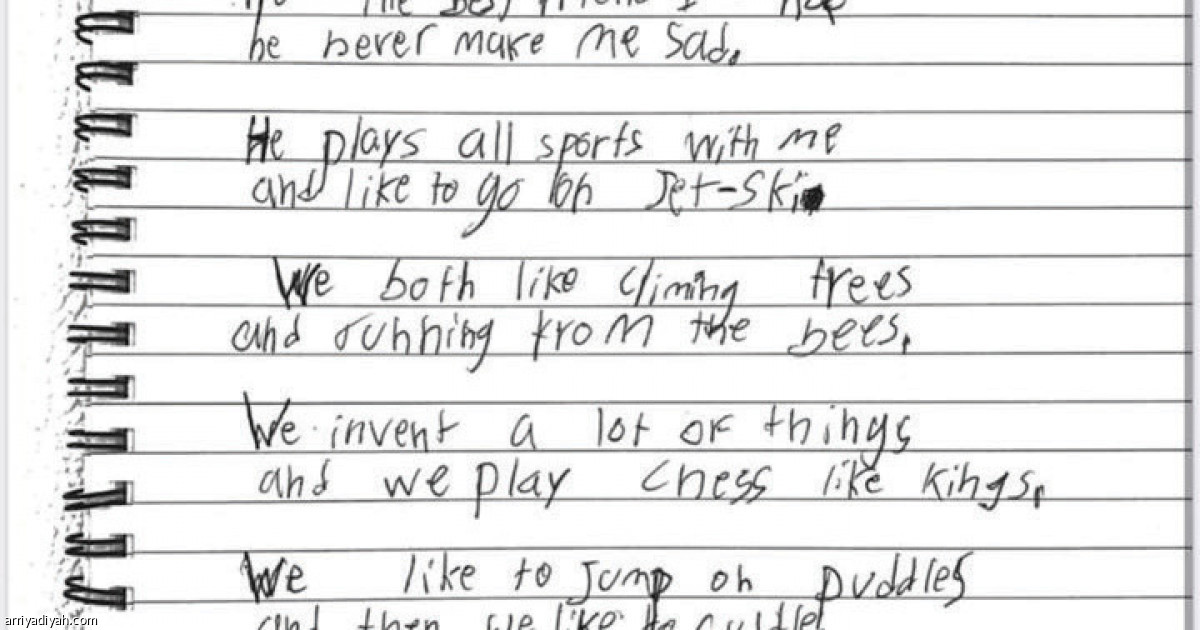 the best friend I
he never make me sad.
He plays all sports with me
and like to go on Jet-Ski
We both like climing trees
and running from the bees.
We invent a lot of things
and we play chess like kings.
We like to jump on puddles
and then we like to
arriyadiyah.com